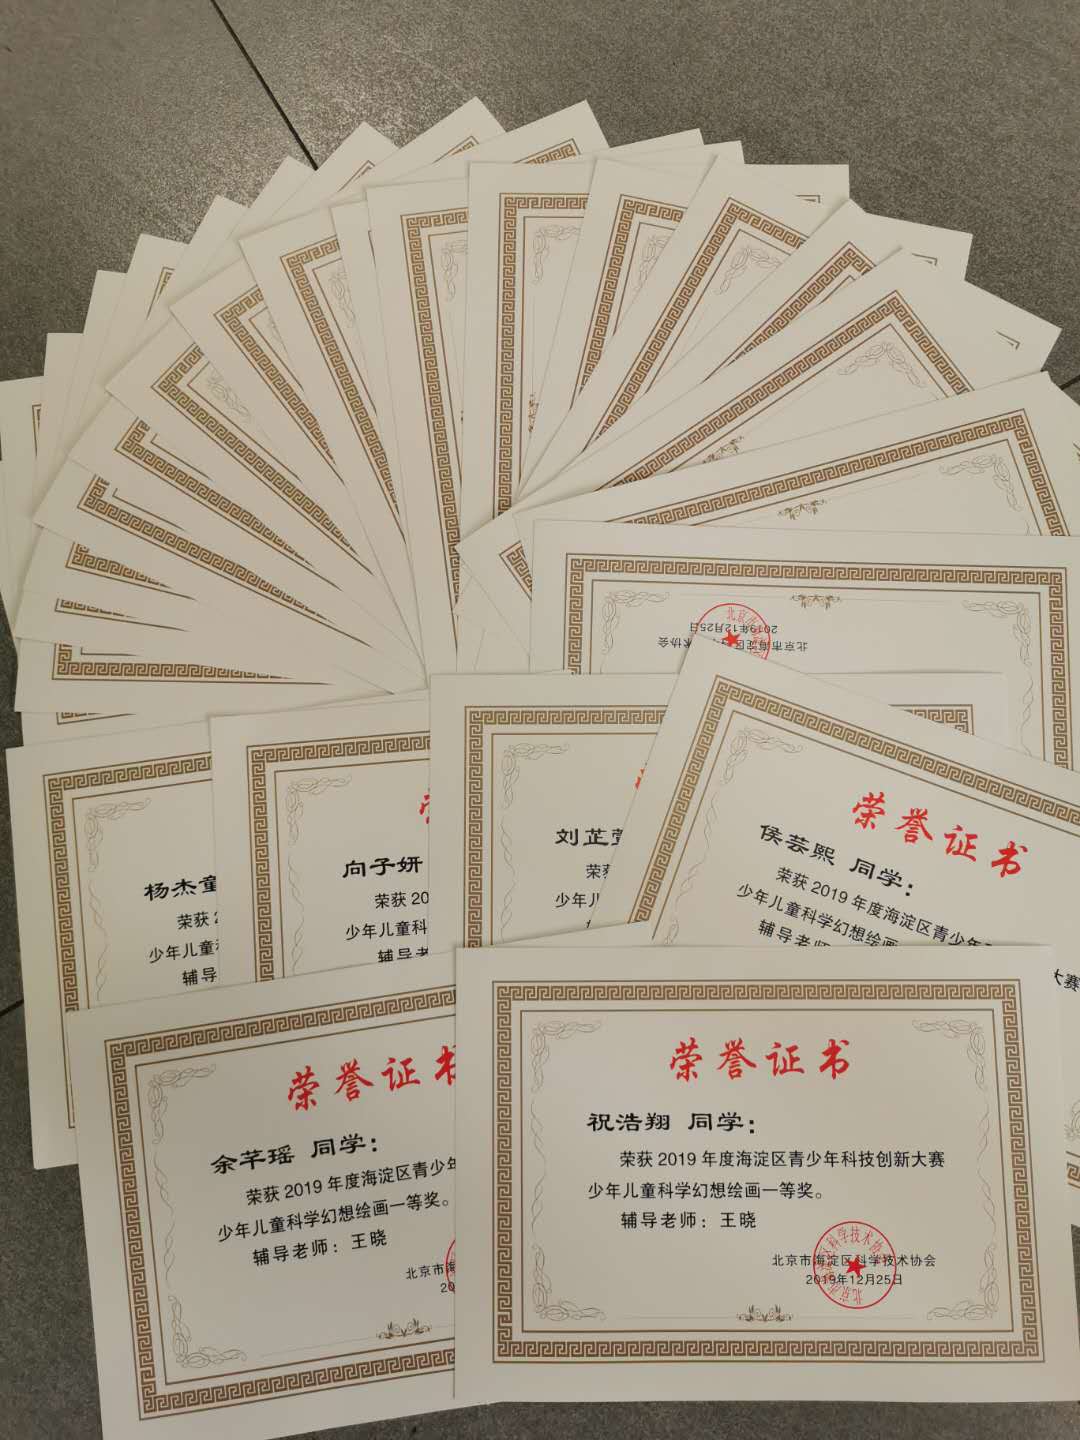 北京市海淀区
2019年12月25日
术协会
杨杰童
荣获
少年儿童科
辅导
向子妍
荣获 20
少年儿童科
辅导老
刘芷萱
荣获
少年儿
荣誉证书
侯芸熙 同学：
荣获 2019 年度海淀区青少年
少年儿童科学幻想绘画一
辅导老师
大赛
荣誉证书
余芊瑶 同学：
荣获 2019 年度海淀区青少年
少年儿童科学幻想绘画一等奖。
辅导老师：王晓
北京市海
20
荣誉证书
祝浩翔 同学：
荣获 2019 年度海淀区青少年科技创新大赛
少年儿童科学幻想绘画一等奖。
辅导老师：王晓
北京市海淀区科学技术协会
2019年12月25日